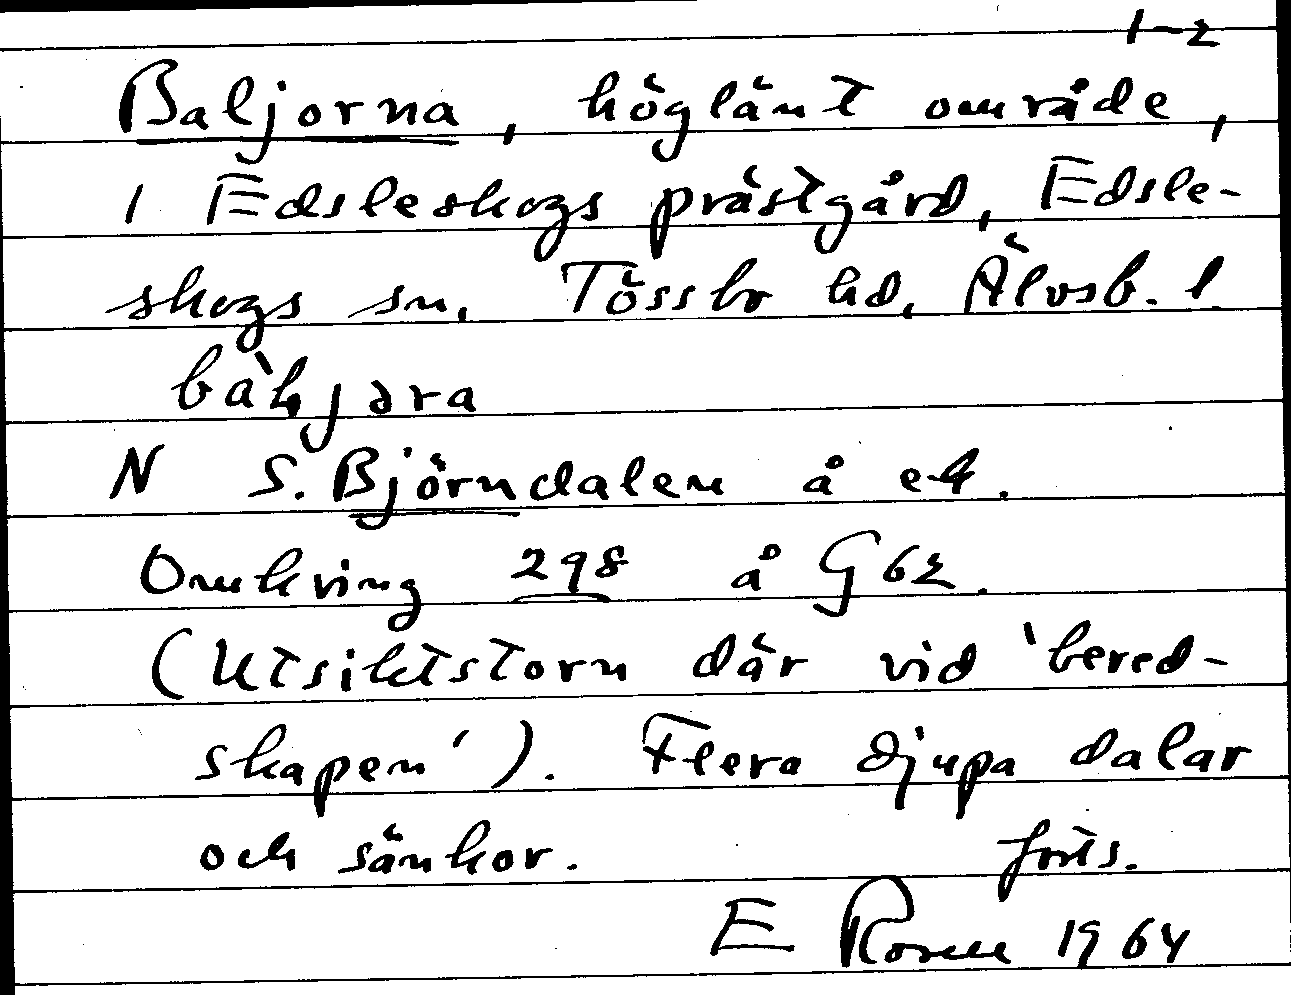 1-2
Baljorna, höglänt område,
i Edsleskogs prästgård, Edsle-
skogs sn. Tössbo hd, Älvsb. l
N S. Björndalen å ek.
Omkring 298 å G62.
(Utsiktstorn där vid 'bered-
skapen'). Flera djupa dalar
och sänkor. forts.
E Rosell 1964